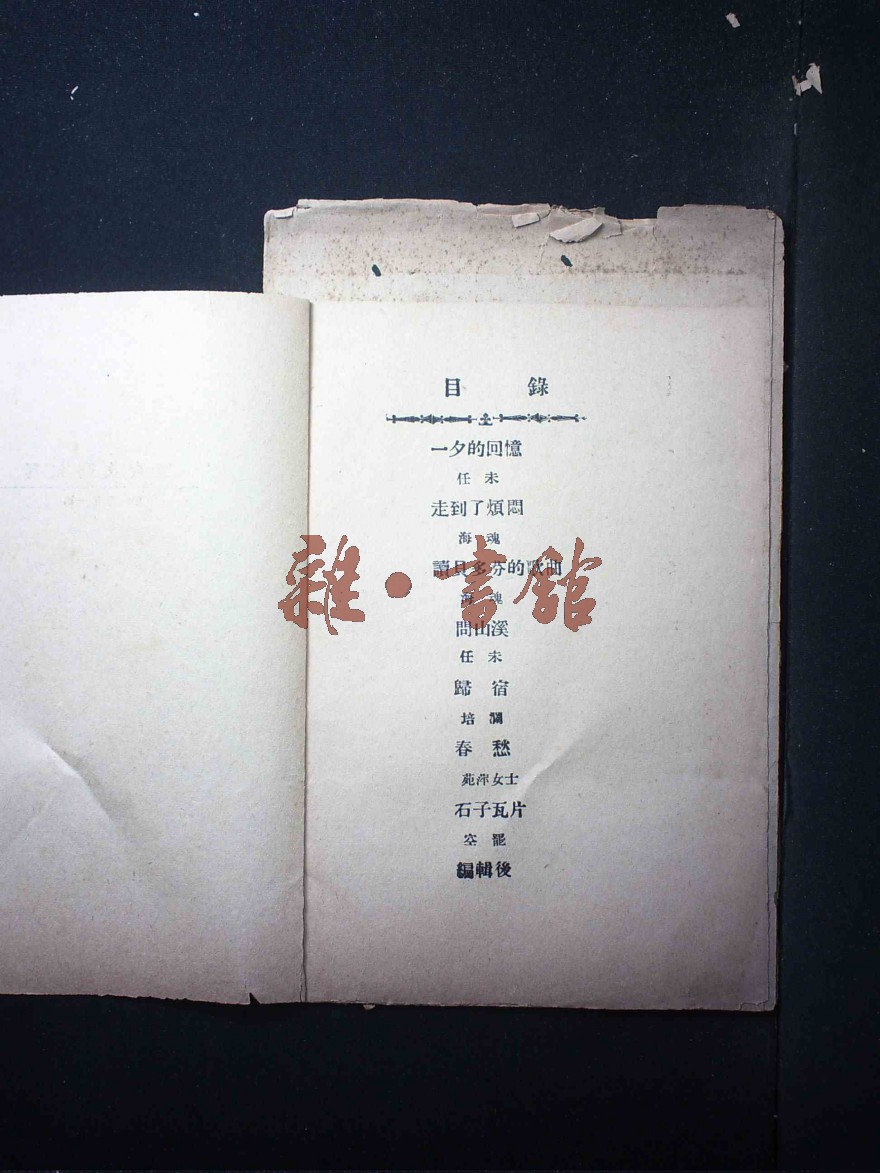 目 錄
一夕的回憶
任 未
走到了煩悶
海 魂
讀貝多芬的歌曲
海 魂
問山溪
任 未
歸 宿
培 瀾
春 愁
苑萍女士
石子瓦片
空 罷
編輯後
雜·書館